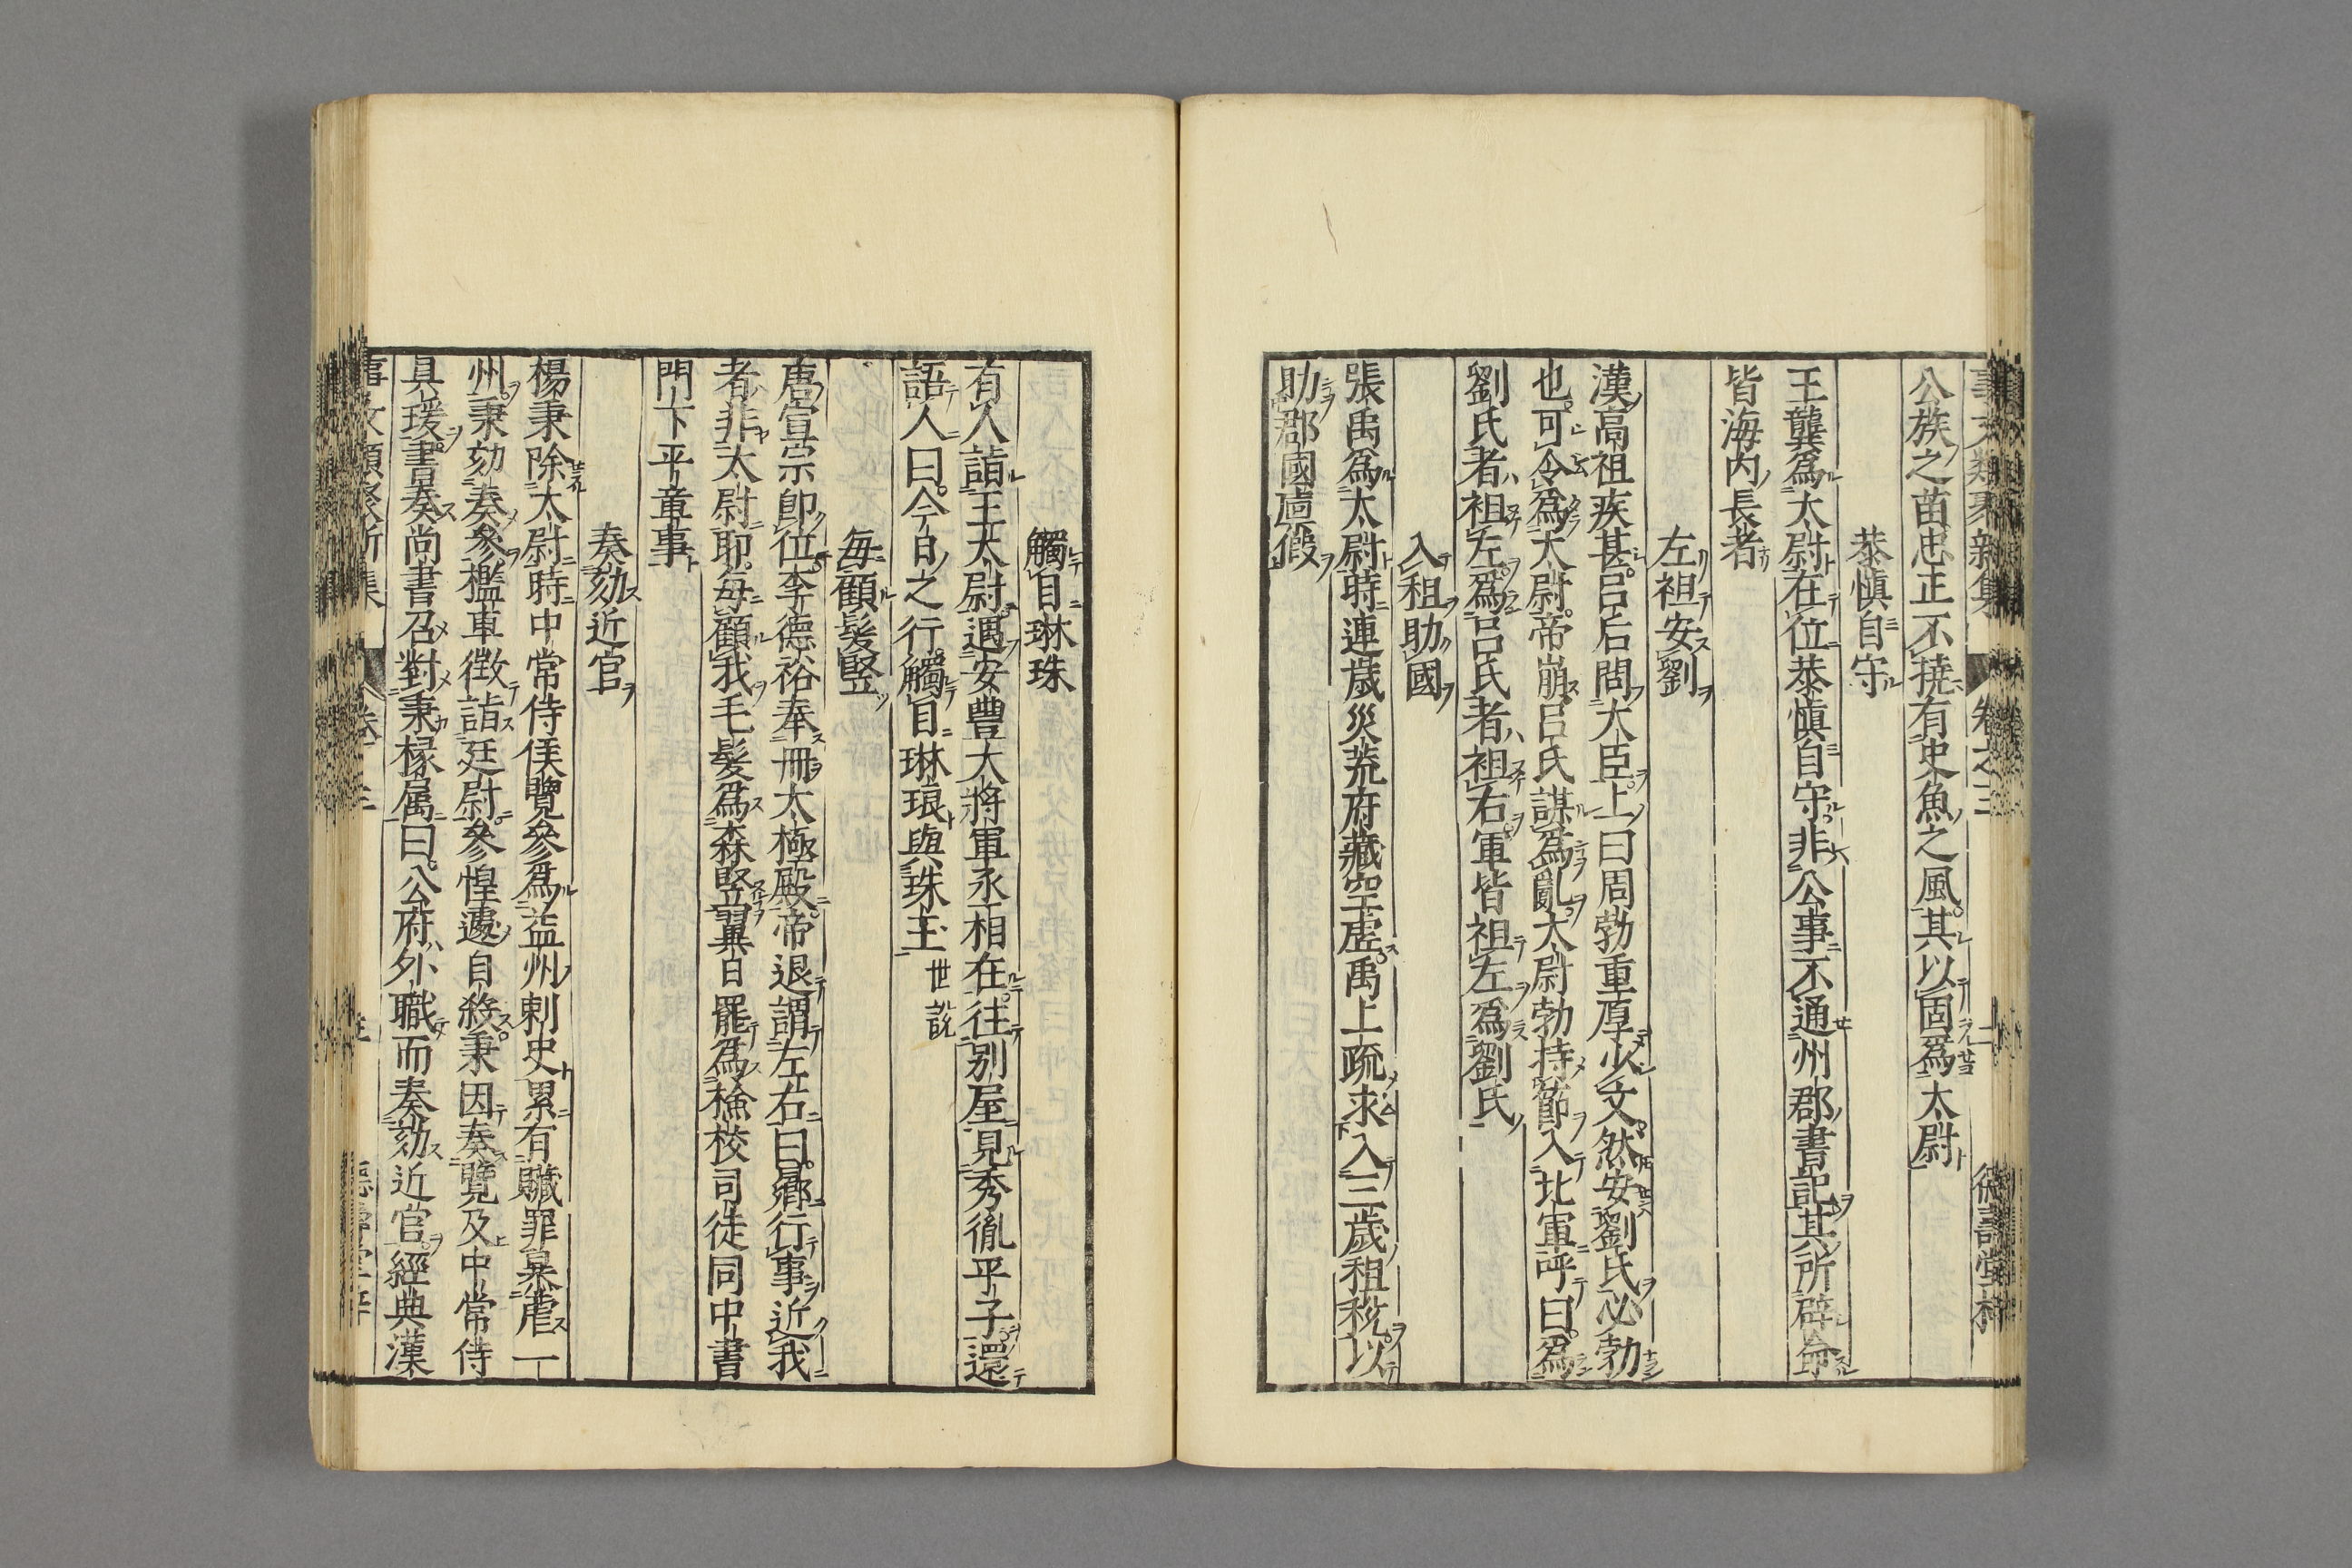 公族之苗忠正不撓有史魚之風其以固爲太尉
恭愼自守
王龔爲太尉在位恭愼自守非公事不通州郡書記其所辟命
皆海内長者
左袒安劉
漢高祖疾甚呂后問大臣上曰周勃重厚少文然安劉氏必勃
也可令爲太尉帝崩呂氏謀爲亂太尉勃持節入北軍呼曰爲
劉氏者袒左爲呂氏者袒右軍皆袒左爲劉氏
入租助國
張禹爲太尉時連歲災荒府藏空虛禹上疏求入三歲租稅以
助郡國廩假
觸目琳珠
有人詣王太尉遇安豐大將軍丞相在往別屋見秀胤平子還
語人曰今日之行觸目琳琅與珠玉 世說
每顧髮竪
唐宣宗卽位李德裕奉冊太極殿帝退謂左右曰曏行事近我
者非太尉耶每顧我毛髮爲森竪翼日罷爲檢校司徒同中書
門下平章事
奏劾近官
楊秉除太尉時中常侍侯覽參爲益州剌史累有贓罪暴虐一
州秉劾奏參檻車徵詣廷尉參惶遽自殺秉因奏覽及中常侍
具瑗書奏尚書召對秉掾属曰公府外職而奏劾近官經典漢